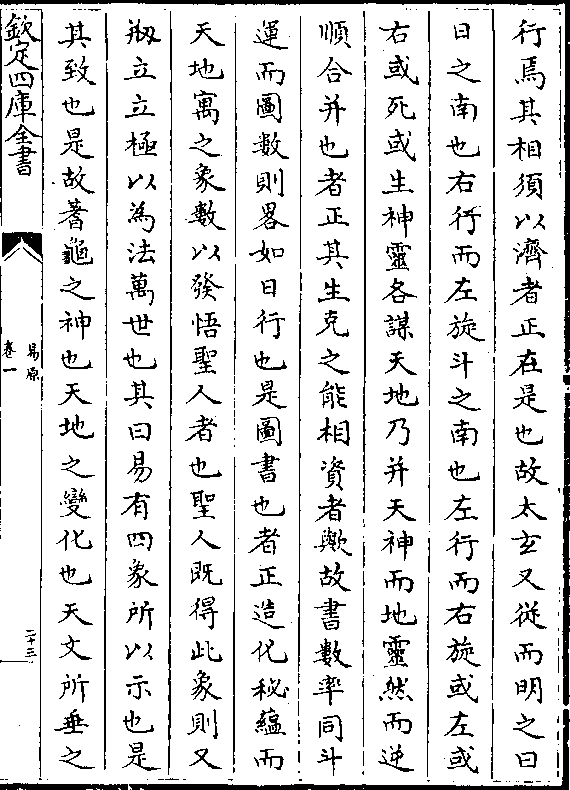 行焉其相須以濟者正在是也故太玄又從而明之曰
日之南也右行而左旋斗之南也左行而右旋或左或
右或死或生神靈各謀天地乃并天神而地靈然而逆
順合并也者正其生克之能相資者歟故書數率同斗
運而圖數則畧如日行也是圖書也者正造化秘蘊而
天地寓之象數以發悟聖人者也聖人既得此象則又
剏立立極以為法萬世也其曰易有四象所以示也是
其致也是故蓍龜之神也天地之變化也天文所垂之
欽定四庫全書
易原
卷一
二十三